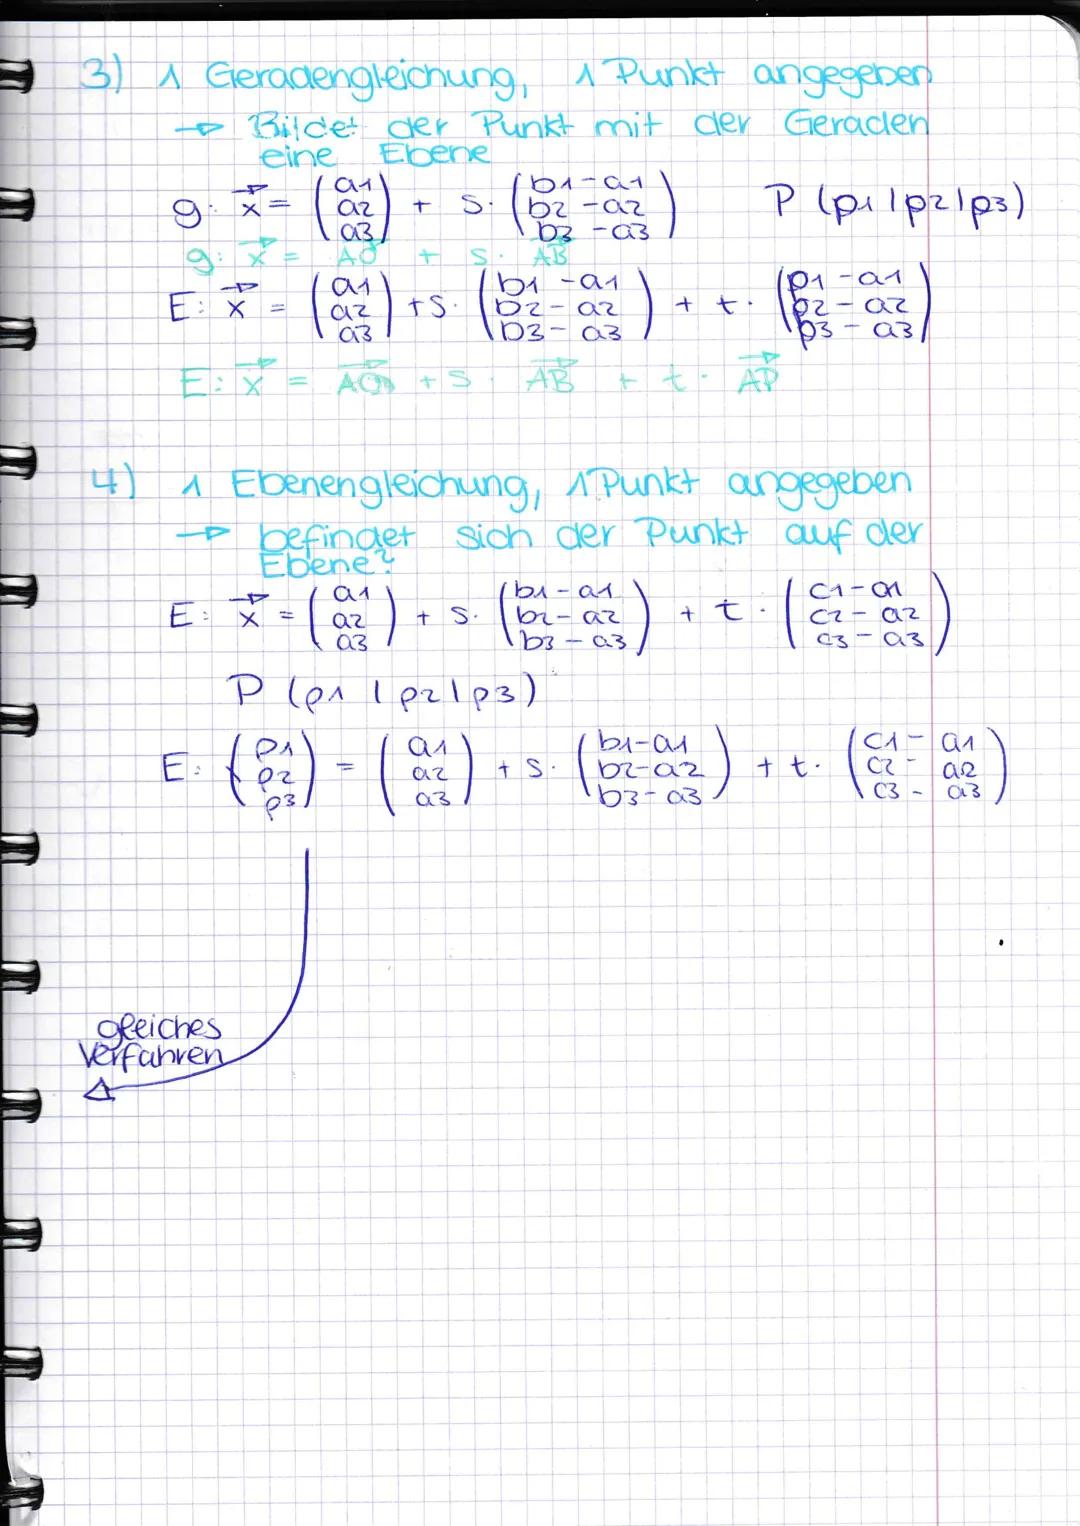 3) 1 Geradengleichung, 1 Punkt angegeben
→ Bildet der Punkt mit der Geraden
eine Ebene
g: x⃗ = (a1 a2 a3) + s · (b1-a1 b2-a2 b3-a3) P (p1|p2|p3)
g: x⃗ = AO⃗ + s · AB⃗
E: x⃗ = (a1 a2 a3) + s · (b1-a1 b2-a2 b3-a3) + t · (p1-a1 p2-a2 p3-a3)
E: x⃗ = AO⃗ + s · AB⃗ + t · AP⃗
4) 1 Ebenengleichung, 1 Punkt angegeben
→ befindet sich der Punkt auf der
Ebene?
E: x⃗ = (a1 a2 a3) + s · (b1-a1 b2-a2 b3-a3) + t · (c1-a1 c2-a2 c3-a3)
P (p1 | p2 | p3)
E: (p1 p2 p3) = (a1 a2 a3) + s · (b1-a1 b2-a2 b3-a3) + t · (c1-a1 c2-a2 c3-a3)
gleiches
Verfahren